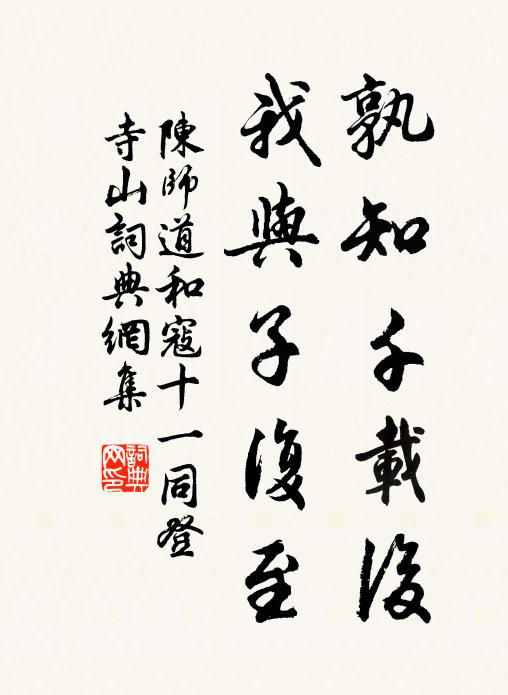 孰知千載後
我與子復至
陳師道和寇十一同登
寺山詞典網集
詞典
网印